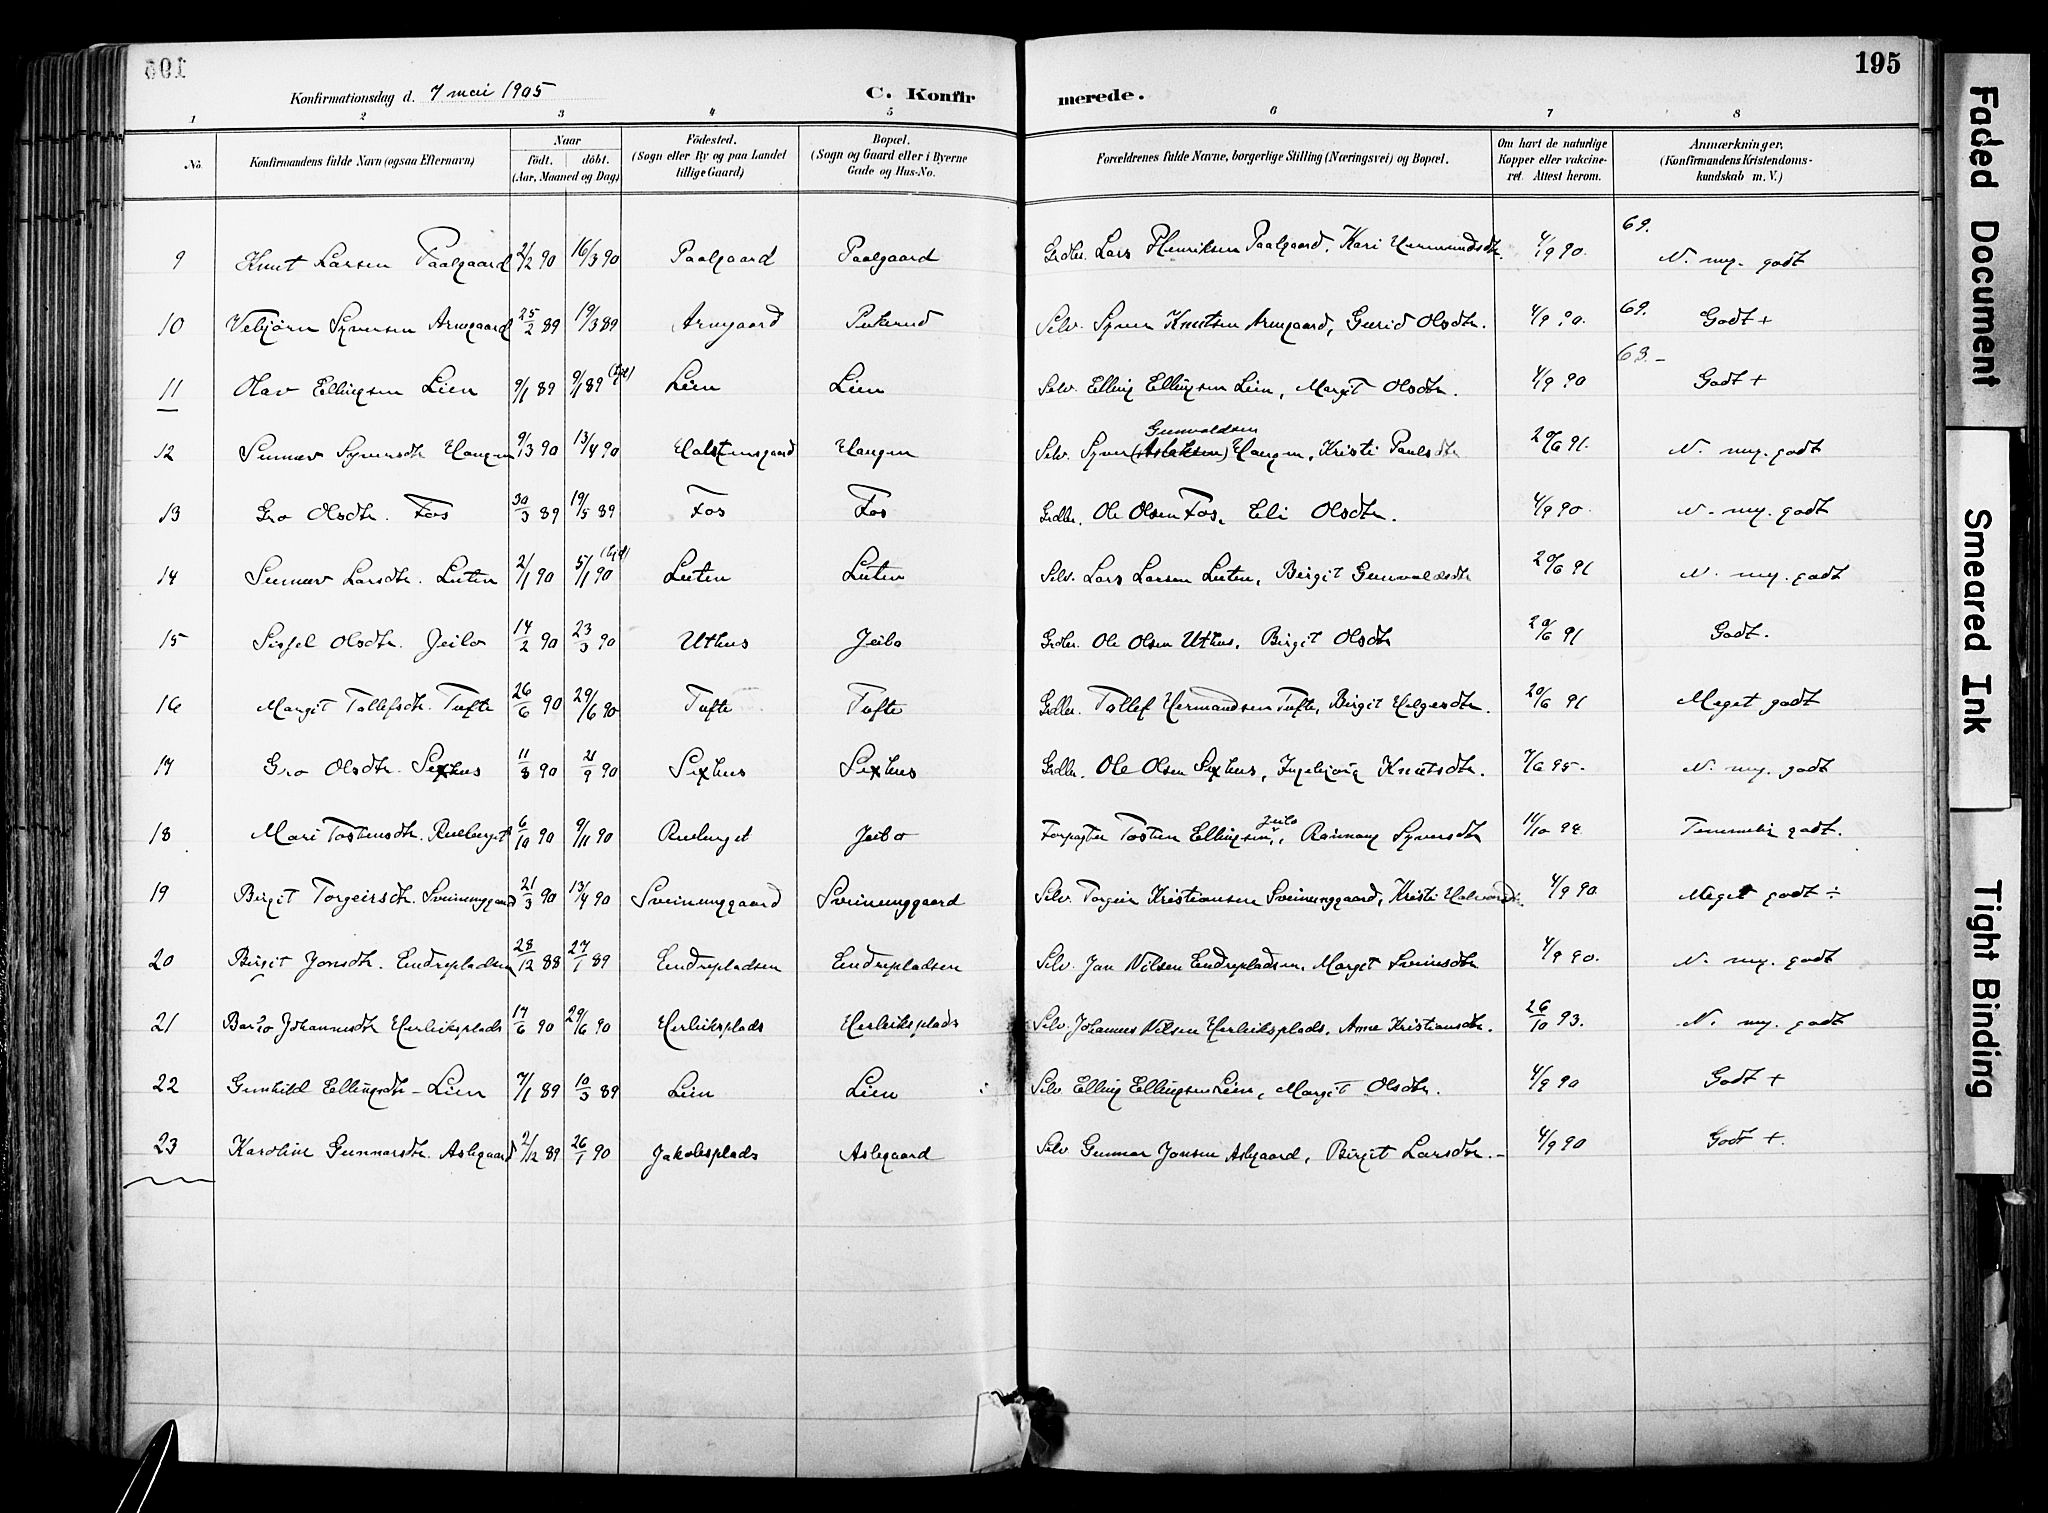 195
Konfirmationsdag d. 7 mai 1905 C. Konfirmerede.
1 2 3 4 5 6 7 8
No. Konfirmandens fulde Navn (ogsaa Efternavn) Naar født. døbt. (Aar, Maaned og Dag) Födested. (Sogn eller By og paa Landet tillige Gaard) Bopæl. (Sogn og Gaard eller i Byerne Gade og Hus-No. Forældrenes fulde Navne, borgerlige Stilling (Næringsvei) og Bopæl. Om havt de naturlige Kopper eller vakcineret. Attest herom. Anmærkninger, (Konfirmandens Kristendomskundskab m. V.)
9 Knut Larsen Paalgaard 2/2 90 16/3 90 Paalgaard Paalgaard Grdbr. Lars Henriksen Paalgaard, Kari Hermundsdtr. 4/9 90. 69. N. my. godt
10 Vebjørn Syversen Arnegaard 25/2 89 19/3 89 Arnegaard Selv. Syver Knutsen Arnegaard, Gurid Olsdtr. 4/9 90. 69. Godt +
11 Olav Ellingsen Lien 9/1 89 9/1 89 Lien Lien Selv. Elling Ellingsen Lien, Margit Olsdtr. 4/9 90 63.- Godt +
12 Sunnev Syversdtr Haugen 9/3 90 13/4 90 Halstensgaard Haugen Selv. Syver (Aslaksen) Gunvaldsen Haugen, Kristi Paulsdtr 20/6 91. N. my. godt
13 Gro Olsdtr. Fos 30/3 89 19/5 89 Fos Fos Grdbr. Ole Olsen Fos, Eli Olsdtr. 4/9 90. N. my. godt
14 Sunnev Larsdtr. Luten 2/1 90 5/1 90 Luten Luten Selv. Lars Larsen Luten, Birgit Gunvaldsdtr 20/6 91 N. my. godt
15 Sissel Olsdtr. Jeilo 14/2 90 23/3 90 Uthus Jeilo Grdbr. Ole Olsen Uthus, Birgit Olsdtr 20/6 91 Godt.
16 Margit Tollefsdtr. Tufte 26/6 90 29/6 90 Tufte Tufte Grdbr. Tollef Hermandsen Tufte, Birgit Helgesdtr. 20/6 91 Meget godt
17 Gro Olsdtr. Sexhus 11/8 90 21/9 90 Sexhus Sexhus Grdbr. Ole Olsen Sexhus, Ingebjørg Knutsdtr. 7/6 95. N. my. godt
18 Mari Tostensdtr. 6/10 90 9/11 90 Jeilo Forpagter Tosten Ellingsen, Jeilo Rannaug Syversdtr 11/10 94. Temmelig godt.
19 Birgit Torgeirsdtr. Sveinunggaard 21/3 90 13/4 90 Sveinunggaard Sveinunggaard Selv. Torgeir Kristiansen Sveinunggaard, Kristi 4/9 90 Meget godt ÷
20 Birgit Jonsdtr. Endrepladsen 28/12 88 27/1 89 Endrepladsen Endrepladsen Selv. Jon Nilsen Endrepladsen, Margit Sveinsdtr 4/9 90. N. my. godt
21 Barbo Johannesdtr Herleiksplads 17/6 90 29/6 90 Herleiksplads Herleiksplads Selv. Johannes Nilsen Herleiksplads, Anne Kristiansdtr. 26/10 93. N. my. godt
22 Gunhild Ellingsdtr - Lien 7/1 89 10/3 89 Lien Lien Selv Elling Ellingsen Lien, Margit Olsdtr. 4/9 90 Godt +
23 Karoline Gunnarsdtr. Aslegaard 2/12 89 26/1 90 Jakobsplads Aslegaard Selv Gunnar Jonsen Aslegaard, Birgit Larsdtr. - 4/9 90 Godt +.
Faded Document
Smeared Ink
Tight Binding